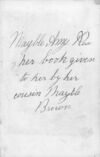 Mayble, Amy
her book given
to her by her
cousin Mayble
Brown